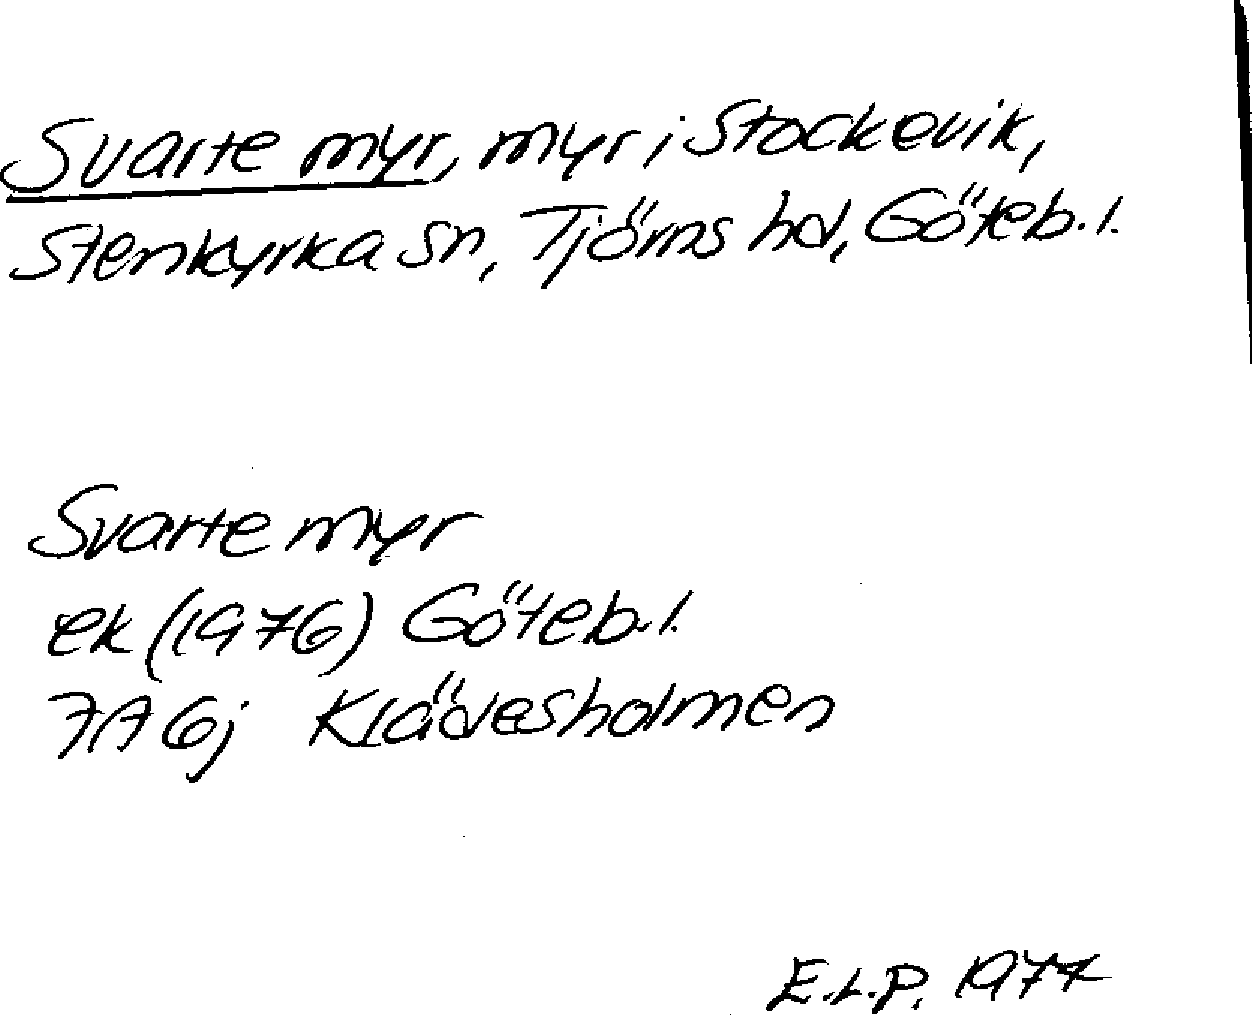 Svarte myr, myr i Stockevik,
Stenkyrka sn, Tjörns hd, Göteb. l.
Svarte myr
ek (1976) Göteb. l.
7A 6j Klädesholmen
E.L.P. 1977